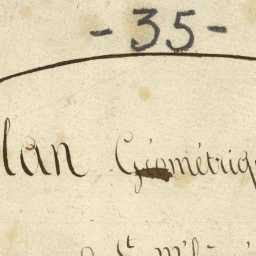 - 35 -
lan Géométriq